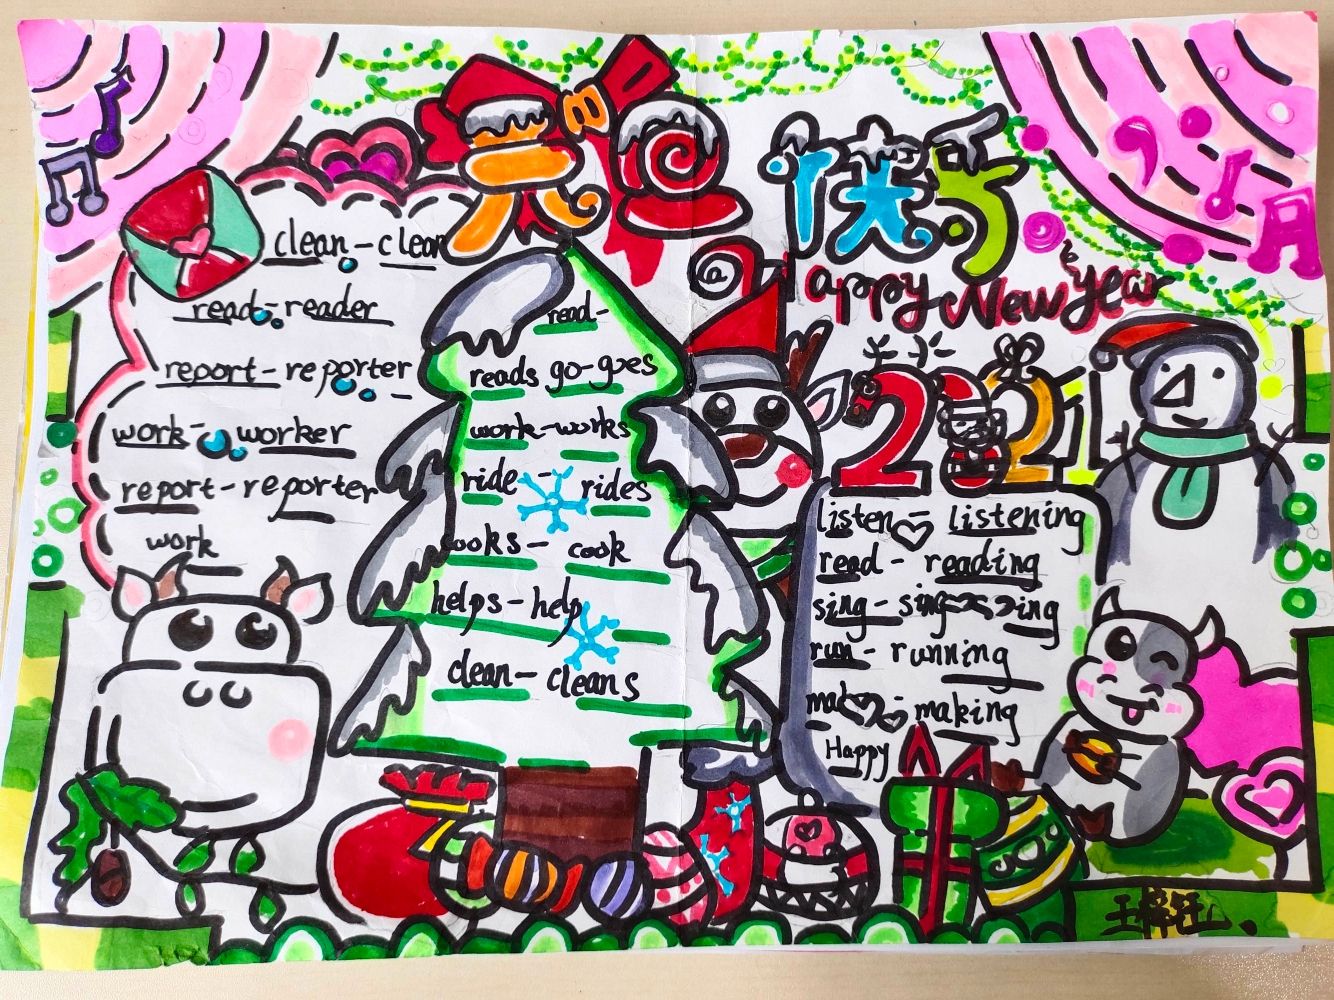 元旦快乐
Happy New Year
2021
clean - clean
read - reader
report - reporter
work - worker
report - reporter
work
read -
reads go - goes
work - works
ride - rides
cooks - cook
helps - help
clean - cleans
listen - listening
read - reading
sing - singing
run - running
mak - making
Happy